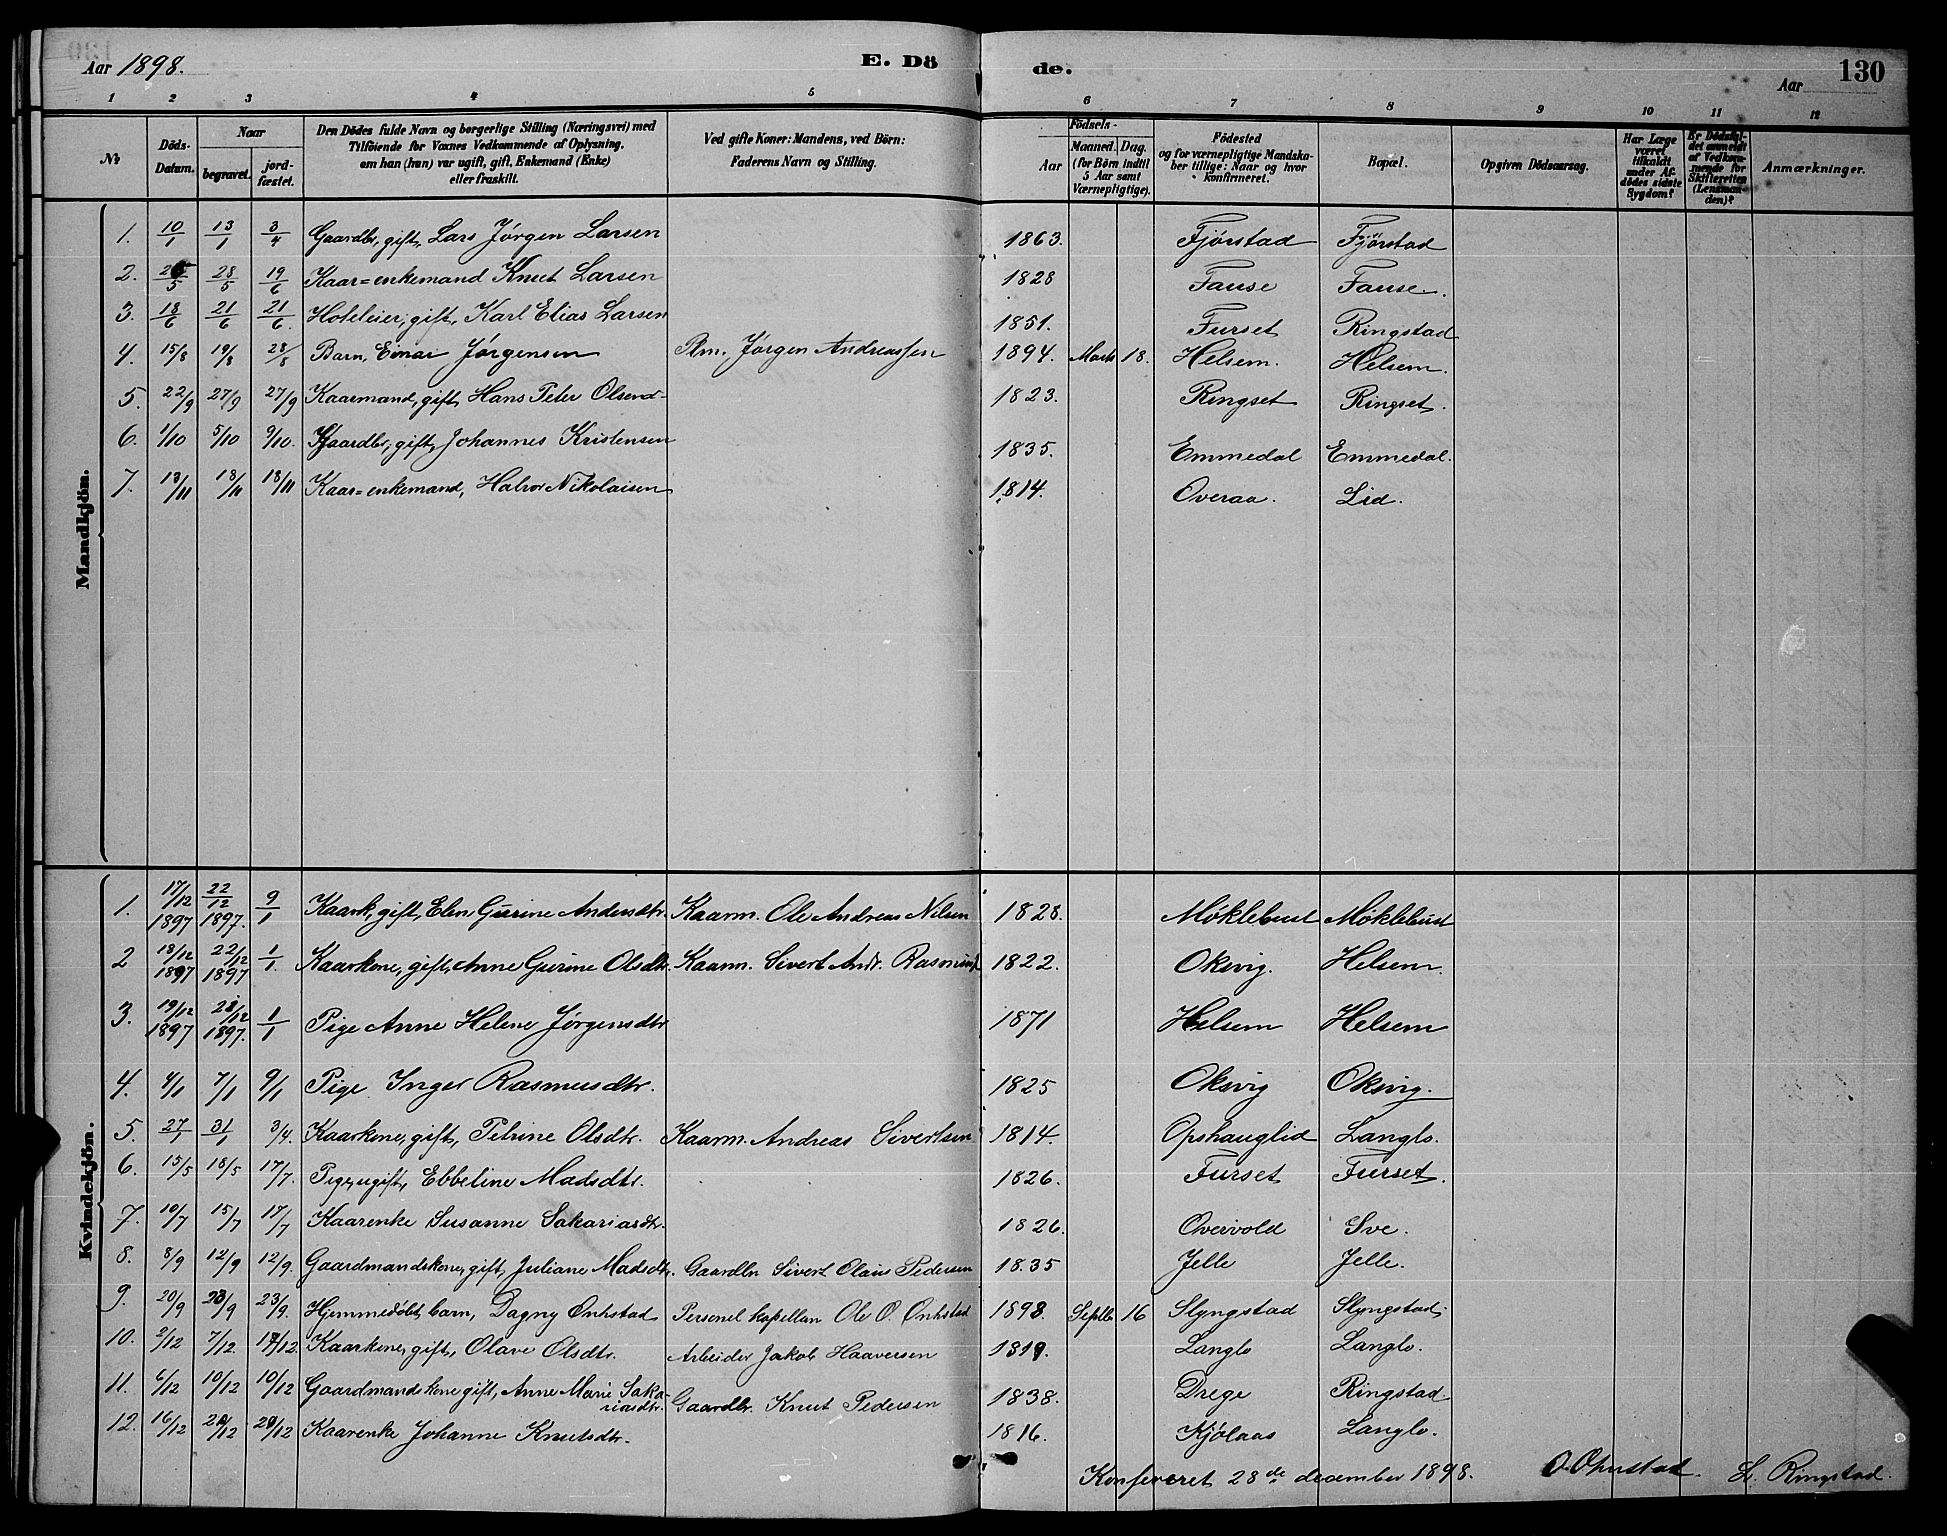 Aar 1898. E. Dö de. Aar 130
1 2 3 4 5 6 7 8 9 10 11 12
№ Döds-Datum. Naar begravet. jordfæstet. Den Dödes fulde Navn og borgerlige Stilling (Næringsvei) med Tilföiende for Voxnes Vedkommende af Oplysning, om han (hun) var ugift, gift, Enkemand (Enke) eller fraskilt. Ved gifte Koner: Mandens, ved Börn: Faderens Navn og Stilling. Födsels- Aar Maaned. Dag. (for Börn indtil 5 Aar samt Værnepligtige). Födested og for værnepligtige Mandskaber tillige: Naar og hvor konfirmeret. Bopæl. Opgiven Dödsaarsag. Har Læge været tilkaldt under Afdödes sidste Sygdom? Er Dödsfaldet anmeldt af Vedkommende for Skifteretten (Lensmanden)? Anmærkninger.
Mandkjön.
1. 10/1 13/1 3/4 Gaardbr, gift, Lars Jørgen Larsen 1863. Fjørstad Fjørstad
2. 5 28/5 19/6 Kaar=enkemand Knut Larsen 1828 Fause Fause.
3. 18/6 21/6 21/6. Hoteleier, gift, Karl Elias Larsen 1851. Furset Ringstad
4. 15/8 19/8 28/8 Barn, Einar Jørgensen Jørgen Andreassen 1894. Marts 18. Helsem. Helsem.
5. 22/9 27/9 27/9 Kaarmand, gift, Hans Peter 1823. Ringset Ringset.
6. 1/10 5/10 9/10. Gaardbr, gift, Johannes Kristensen 1835. Emmedal Emmedal.
7. 13/11 18/11 18/11 Kaar=enkemand, Halvor Nikolaisen 1814. Overaa. Lid.
Kvindekjön.
1. 17/12 1897 22/12 1897. 9/1 Kaark, gift, Elen Gurine Andersdtr. Kaarm. Ole Andreas Nilsen 1828. Møklebust Møklebust
2 18/12 1897 22/12 1897 1/1. Kaarkone, gift, Anne Gurine Olsdtr. Kaarm. Sivert Andr. 1822. Oksvig. Helsem.
3. 19/12 1897 28/12 1897. 1/1 Pige Anne Helene Jørgensdtr 1871 Helsem Helsem
4. 4/1 7/1 9/1 Pige Inger Rasmusdtr. 1825 Oksvig Oksvig.
5. 27/1 31/1 3/4. Kaarkone, gift, Petrine Olsdtr. Kaarm. Andreas Sivertsen 1814. Opshauglid Langlo.
6. 15/5 18/5 17/7. Pige, ugift, Ebbeline Madsdtr. 1826. Furset Furset.
7. 10/7 15/7 17/7 Kaarenke Susanne Sakariasdtr. 1826. Overvold Sve.
8. 8/9 12/9 12/9. Gaardmandskone, gift, Juliane Madsdtr. Gaardbr Sivert Olaus Pedersen 1835 Jelle Jelle.
9. 20/9 23/9 23/9. Hjemmedøbt barn, Dagny Ønhstad Personel kapellan Ole O. Ønhstad 1898. Septbr 16 Slyngstad Slyngstad.
10. 2/12 7/12 17/12. Kaarkone, gift, Olave Olsdtr. Arbeider Jakob Haaversen 1819. Langlo Langlo.
11. 6/12 10/12 10/12 Gaardmandskone gift, Anne Marie Sakariasdtr. Gaardbr. Knut Pedersen 1838. Drege Ringstad.
12. 16/12 Kaarenke Johanne Knutsdtr. 1816. Kjølaas Langlo.
Konfereret 28de december 1898. L. Ringstad.